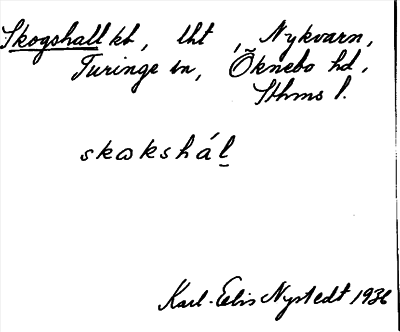 Skogshall kt, lht, Nykvarn,
Turinge sn, Öknebo hd,
Sthms l.
skɷkshál
Karl-Eelis Nystedt 1936